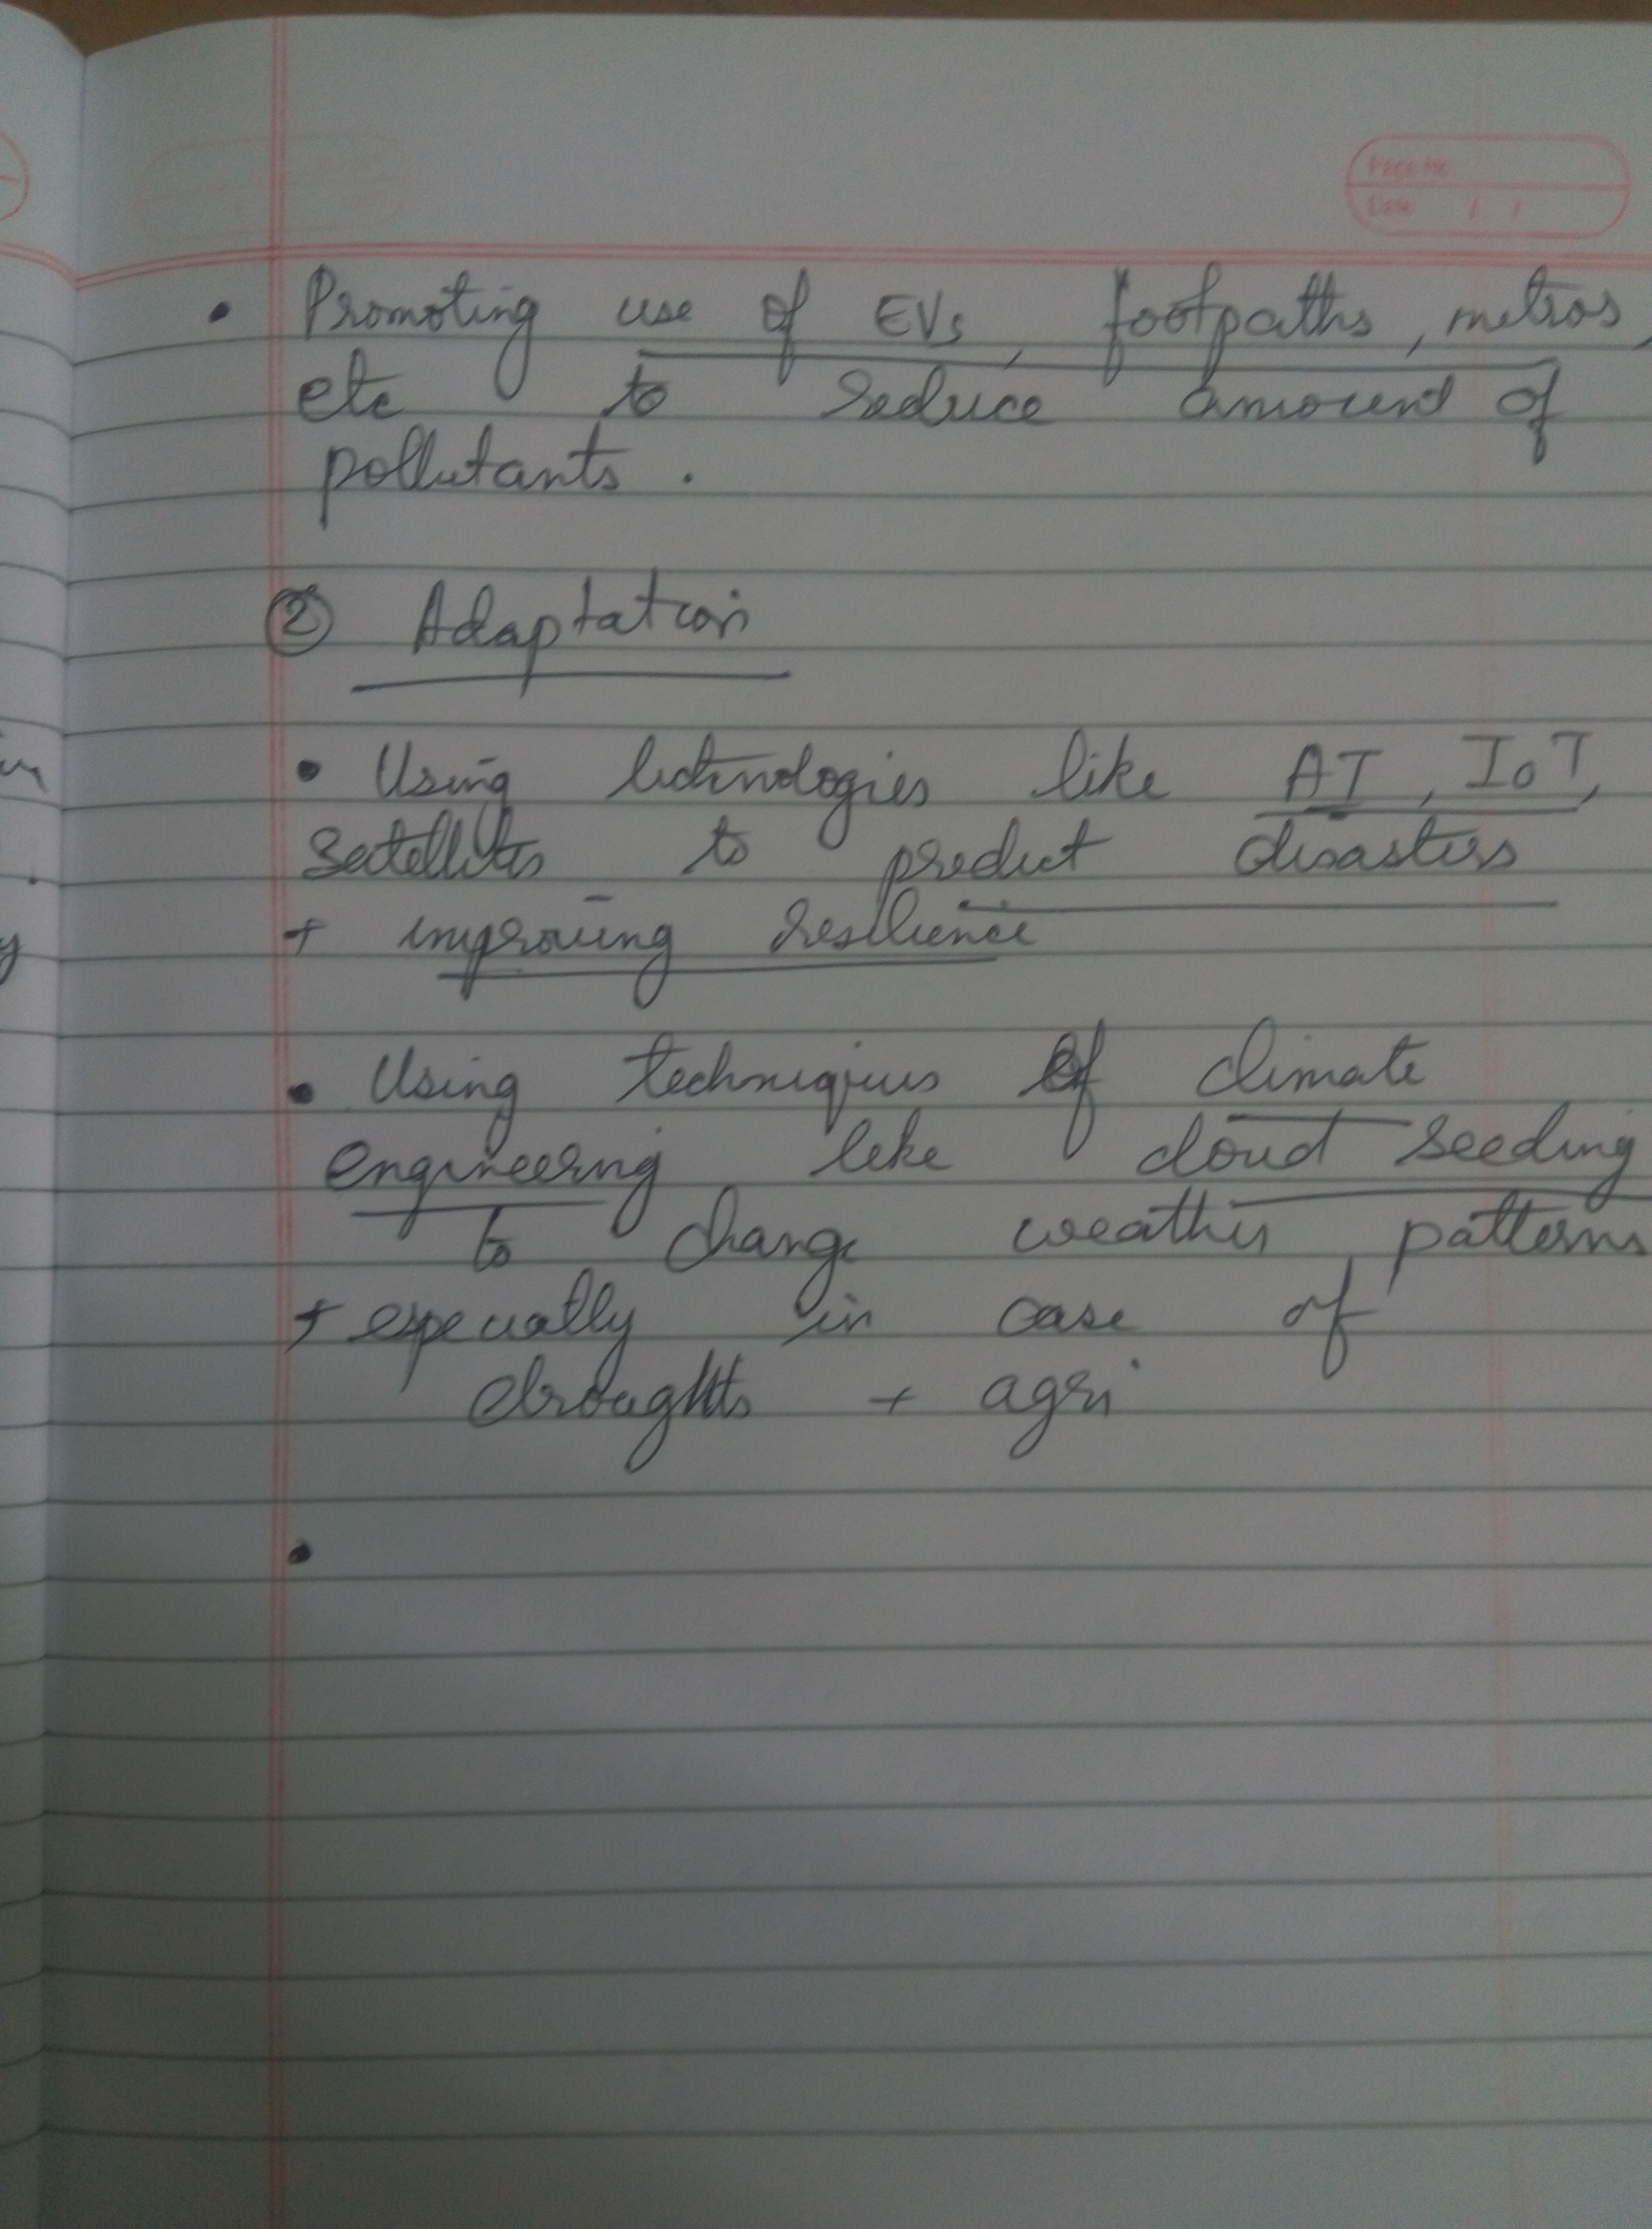 Page No
Date / /
• Promoting use of EVs, footpaths, metros,
etc to reduce amount of
pollutants.
② Adaptation
• Using technologies like AI, IoT,
satellites to predict disasters
+ improving resilience
• Using techniques of climate
engineering like cloud seeding
to change weather patterns
+ especially in case of
droughts + agri
•